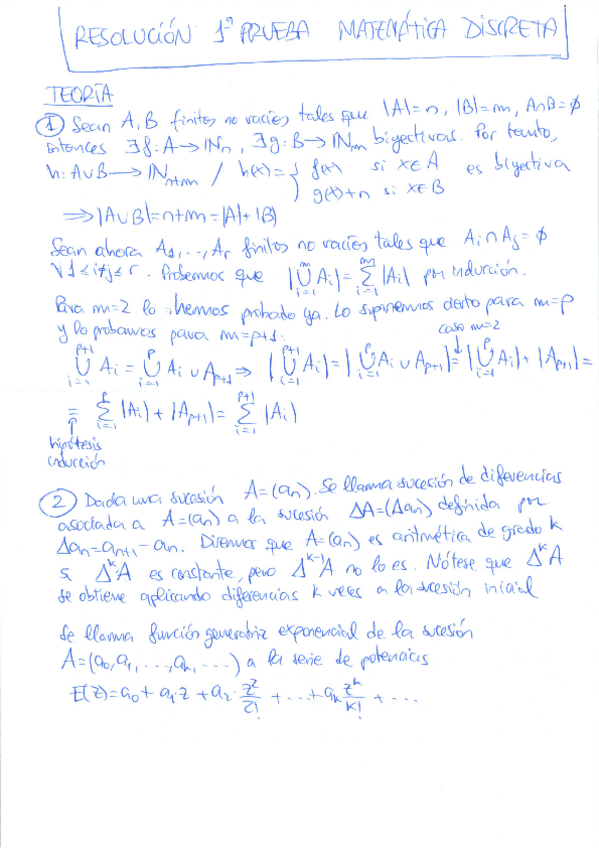 RESOLUCIÓN 1ª PRUEBA MATEMÁTICA DISCRETA
TEORÍA
① Sean A, B finitos no vacíos tales que |A|=n, |B|=m, A∩B=∅
Entonces ∃f: A→ℕₙ, ∃g: B→ℕₘ biyectivas. Por tanto,
h: A∪B → ℕₙ₊ₘ / h(x)= { f(x) si x∈A es biyectiva
g(x)+n si x∈B
⟹ |A∪B|=n+m=|A|+|B|
Sean ahora A₁,...,Aᵣ finitos no vacíos tales que Aᵢ∩Aⱼ=∅
∀ 1≤i≠j≤r. Probemos que |⋃ᵢ₌₁ᵐ Aᵢ| = ∑ᵢ₌₁ᵐ |Aᵢ| por inducción.
Para m=2 lo hemos probado ya. Lo suponemos cierto para m=p
y lo probamos para m=p+1:
caso m=2
⋃ᵢ₌₁ᵖ⁺¹ Aᵢ = ⋃ᵢ₌₁ᵖ Aᵢ ∪ Aₚ₊₁ ⟹ |⋃ᵢ₌₁ᵖ⁺¹ Aᵢ| = |⋃ᵢ₌₁ᵖ Aᵢ ∪ Aₚ₊₁| = |⋃ᵢ₌₁ᵖ Aᵢ| + |Aₚ₊₁| =
= ∑ᵢ₌₁ᵖ |Aᵢ| + |Aₚ₊₁| = ∑ᵢ₌₁ᵖ⁺¹ |Aᵢ|
↑
hipótesis
inducción
② Dada una sucesión A=(aₙ). Se llama sucesión de diferencias
asociada a A=(aₙ) a la sucesión ΔA=(Δaₙ) definida por
Δaₙ=aₙ₊₁-aₙ. Diremos que A=(aₙ) es aritmética de grado k
si ΔᵏA es constante, pero Δᵏ⁻¹A no lo es. Nótese que ΔᵏA
se obtiene aplicando diferencias k veces a la sucesión inicial
Se llama función generatriz exponencial de la sucesión
A=(a₀,a₁,...,aₖ,...) a la serie de potencias
E(z)=a₀+a₁·z+a₂·z²/2!+...+aₖ zᵏ/k!+...